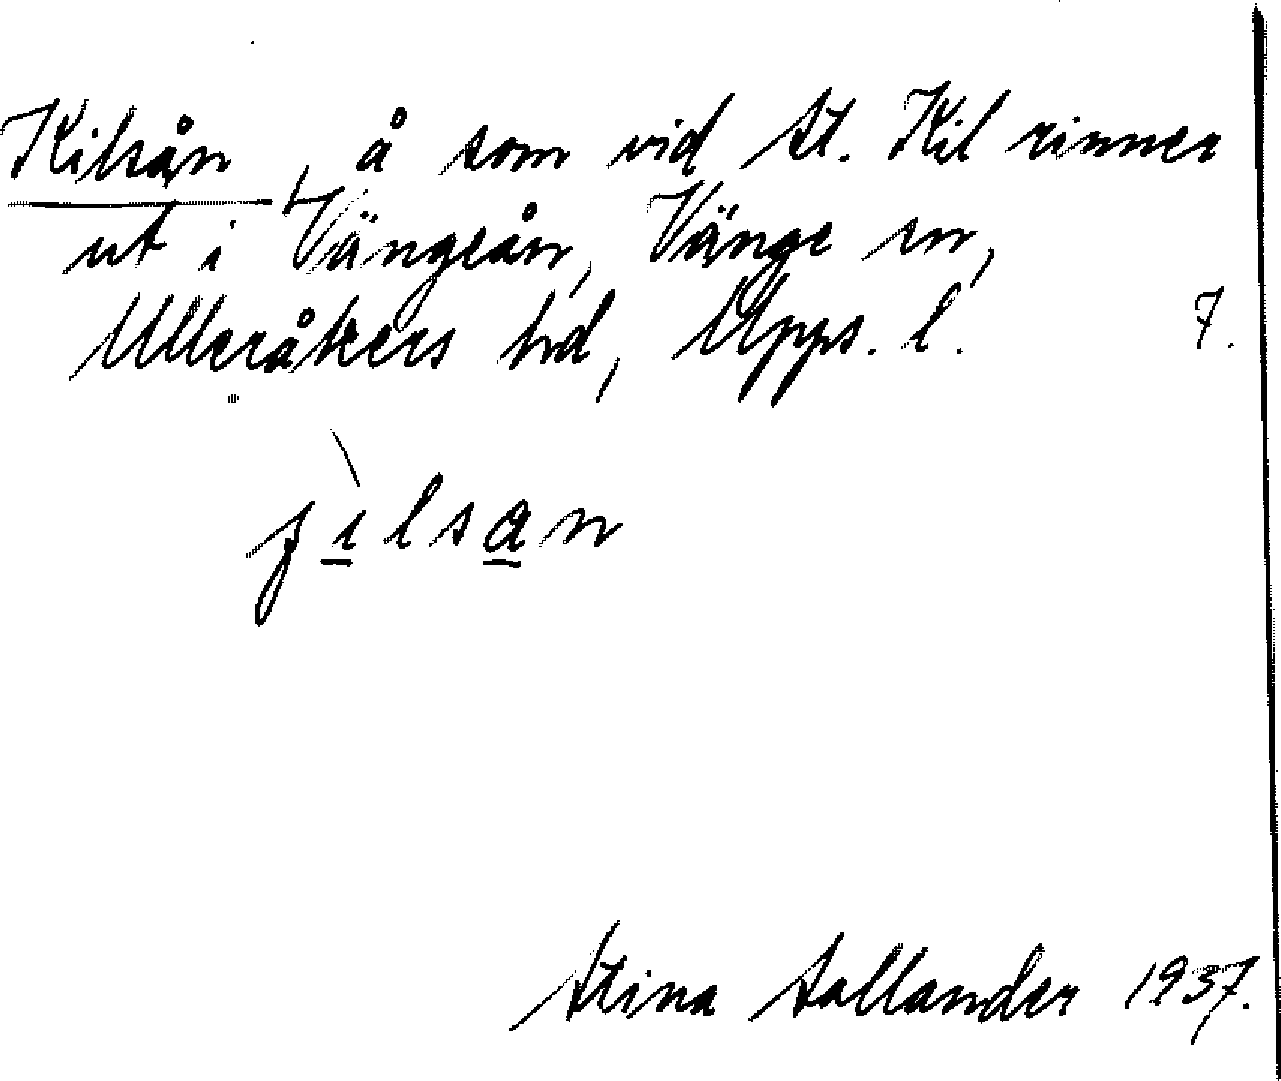 Kilsån, å som vid St. Kil rinner
ut i Vängeån, Vänge sn,
Ulleråkers hd, Upps. l. 7.
jìlsan
Stina Sallander 1937.